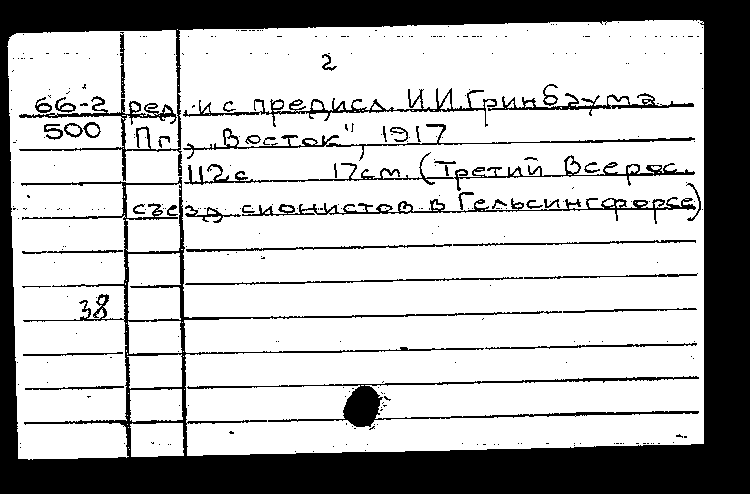 2
66-2 ред. и с предисл. И.И. Гринбаума.
500 Пг., „Восток", 1917
112 с 17 см. (Третий Всерос.
съезд сионистов в Гельсингфорсе)
38